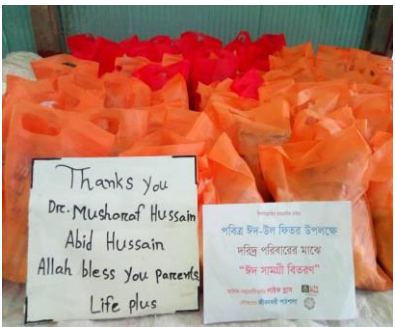 Thanks you
Dre. Musharaf Hussain
Abid Hussain
Allah bless you parents
Life plus
পবিত্র ঈদ-উল ফিতর উপলক্ষে
দরিদ্র পরিবারের মাঝে
“ঈদ সামগ্রী বিতরণ”
লাইফ প্লাস